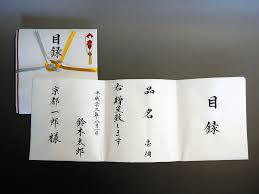 目録
目録
品名 壱個
右贈呈致します
平成二十三年八月一日
鈴木太郎
京都一郎様